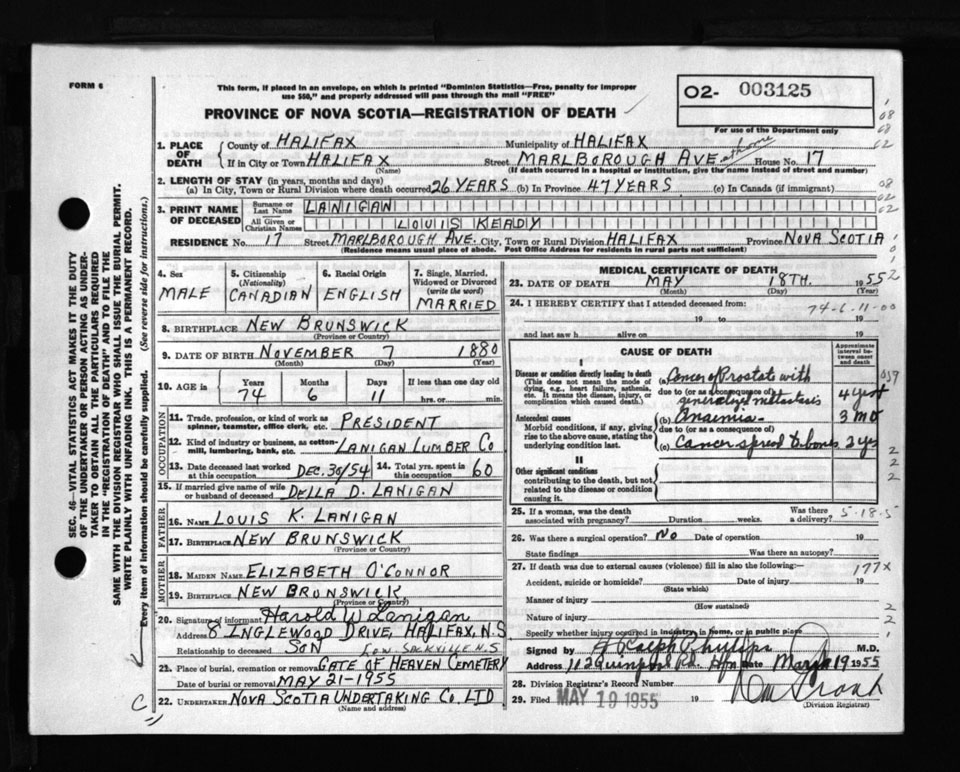 FORM 6
This form, if placed in an envelope, on which is printed "Dominion Statistics—Free, penalty for improper
use $50," and properly addressed will pass through the mail "FREE"
PROVINCE OF NOVA SCOTIA—REGISTRATION OF DEATH
02- 003125
For use of the Department only
1. PLACE OF DEATH
County of HALIFAX Municipality of HALIFAX
If in City or Town HALIFAX Street MARLBOROUGH AVE. at home House No. 17
(Name) (If death occurred in a hospital or institution, give the name instead of street and number)
2. LENGTH OF STAY (in years, months and days)
(a) In City, Town or Rural Division where death occurred 26 YEARS (b) In Province 47 YEARS (c) In Canada (if immigrant)
3. PRINT NAME OF DECEASED
Surname or Last Name LANIGAN
All Given or Christian Names LOUIS KEADY
RESIDENCE No. 17 Street MARLBOROUGH AVE. City, Town or Rural Division HALIFAX Province NOVA SCOTIA
(Residence means usual place of abode. Post Office Address for residents in rural parts not sufficient)
4. Sex MALE
5. Citizenship (Nationality) CANADIAN
6. Racial Origin ENGLISH
7. Single, Married, Widowed or Divorced (write the word) MARRIED
8. BIRTHPLACE NEW BRUNSWICK
(Province or Country)
9. DATE OF BIRTH NOVEMBER 7 1880
(Month) (Day) (Year)
10. AGE in Years 74 Months 6 Days 11 If less than one day old hrs. or min.
OCCUPATION
11. Trade, profession, or kind of work as spinner, teamster, office clerk, etc. PRESIDENT
12. Kind of industry or business, as cotton-mill, lumbering, bank, etc. LANIGAN LUMBER CO
13. Date deceased last worked at this occupation DEC. 30/54 14. Total yrs. spent in this occupation 60
15. If married give name of wife or husband of deceased DELLA D. LANIGAN
FATHER
16. NAME LOUIS K. LANIGAN
17. BIRTHPLACE NEW BRUNSWICK
(Province or Country)
MOTHER
18. MAIDEN NAME ELIZABETH O'CONNOR
19. BIRTHPLACE NEW BRUNSWICK
(Province or Country)
20. Signature of informant Harold W Lanigan
Address 8 INGLEWOOD DRIVE, HALIFAX, N.S
Relationship to deceased SON
LOW. SACKVILLE N.S
21. Place of burial, cremation or removal GATE OF HEAVEN CEMETERY
Date of burial or removal MAY 21-1955
22. UNDERTAKER NOVA SCOTIA UNDERTAKING CO. LTD
(Name and address)
MEDICAL CERTIFICATE OF DEATH
23. DATE OF DEATH MAY 18TH. 1955
(Month) (Day) (Year)
24. I HEREBY CERTIFY that I attended deceased from:
74-6-11-00
19 to 19
and last saw h alive on 19
CAUSE OF DEATH
Approximate interval between onset and death
I
Disease or condition directly leading to death
(This does not mean the mode of dying, e.g., heart failure, asthenia, etc. It means the disease, injury, or complication which caused death.)
(a) Cancer of Prostat with
due to (or as a consequence of) generalized metastasis 4 yrs
Antecedent causes
Morbid conditions, if any, giving rise to the above cause, stating the underlying condition last.
(b) Anaemia 3 mo
due to (or as a consequence of)
(c) Cancer spread to bones 2 yrs
II
Other significant conditions
contributing to the death, but not related to the disease or condition causing it.
25. If a woman, was the death associated with pregnancy? Duration weeks. Was there a delivery?
5-18-5
26. Was there a surgical operation? No Date of operation 19
State findings Was there an autopsy?
27. If death was due to external causes (violence) fill in also the following:
177x
Accident, suicide or homicide? Date of injury 19
(State which)
Manner of injury
(How sustained)
Nature of injury
Specify whether injury occurred in industry, in home, or in public place
Signed by J Ralph Phillips M.D.
Address 112 Quinpool Rd. Date 19 1955
28. Division Registrar's Record Number
29. Filed MAY 19 1955 19
(Division Registrar)
SEC. 46—VITAL STATISTICS ACT MAKES IT THE DUTY
OF THE UNDERTAKER OR PERSON ACTING AS UNDER-
TAKER TO OBTAIN ALL THE PARTICULARS REQUIRED
IN THE "REGISTRATION OF DEATH" AND TO FILE THE
SAME WITH THE DIVISION REGISTRAR WHO SHALL ISSUE THE BURIAL PERMIT.
WRITE PLAINLY WITH UNFADING INK. THIS IS A PERMANENT RECORD.
Every item of information should be carefully supplied. (See reverse side for instructions.)